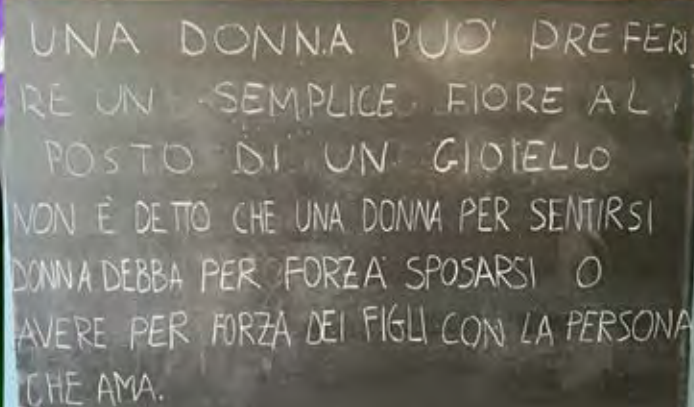 UNA DONNA PUO' PREFERI
RE UN SEMPLICE FIORE AL
POSTO DI UN GIOIELLO
NON È DETTO CHE UNA DONNA PER SENTIRSI
DONNA DEBBA PER FORZA SPOSARSI O
AVERE PER FORZA DEI FIGLI CON LA PERSONA
CHE AMA.